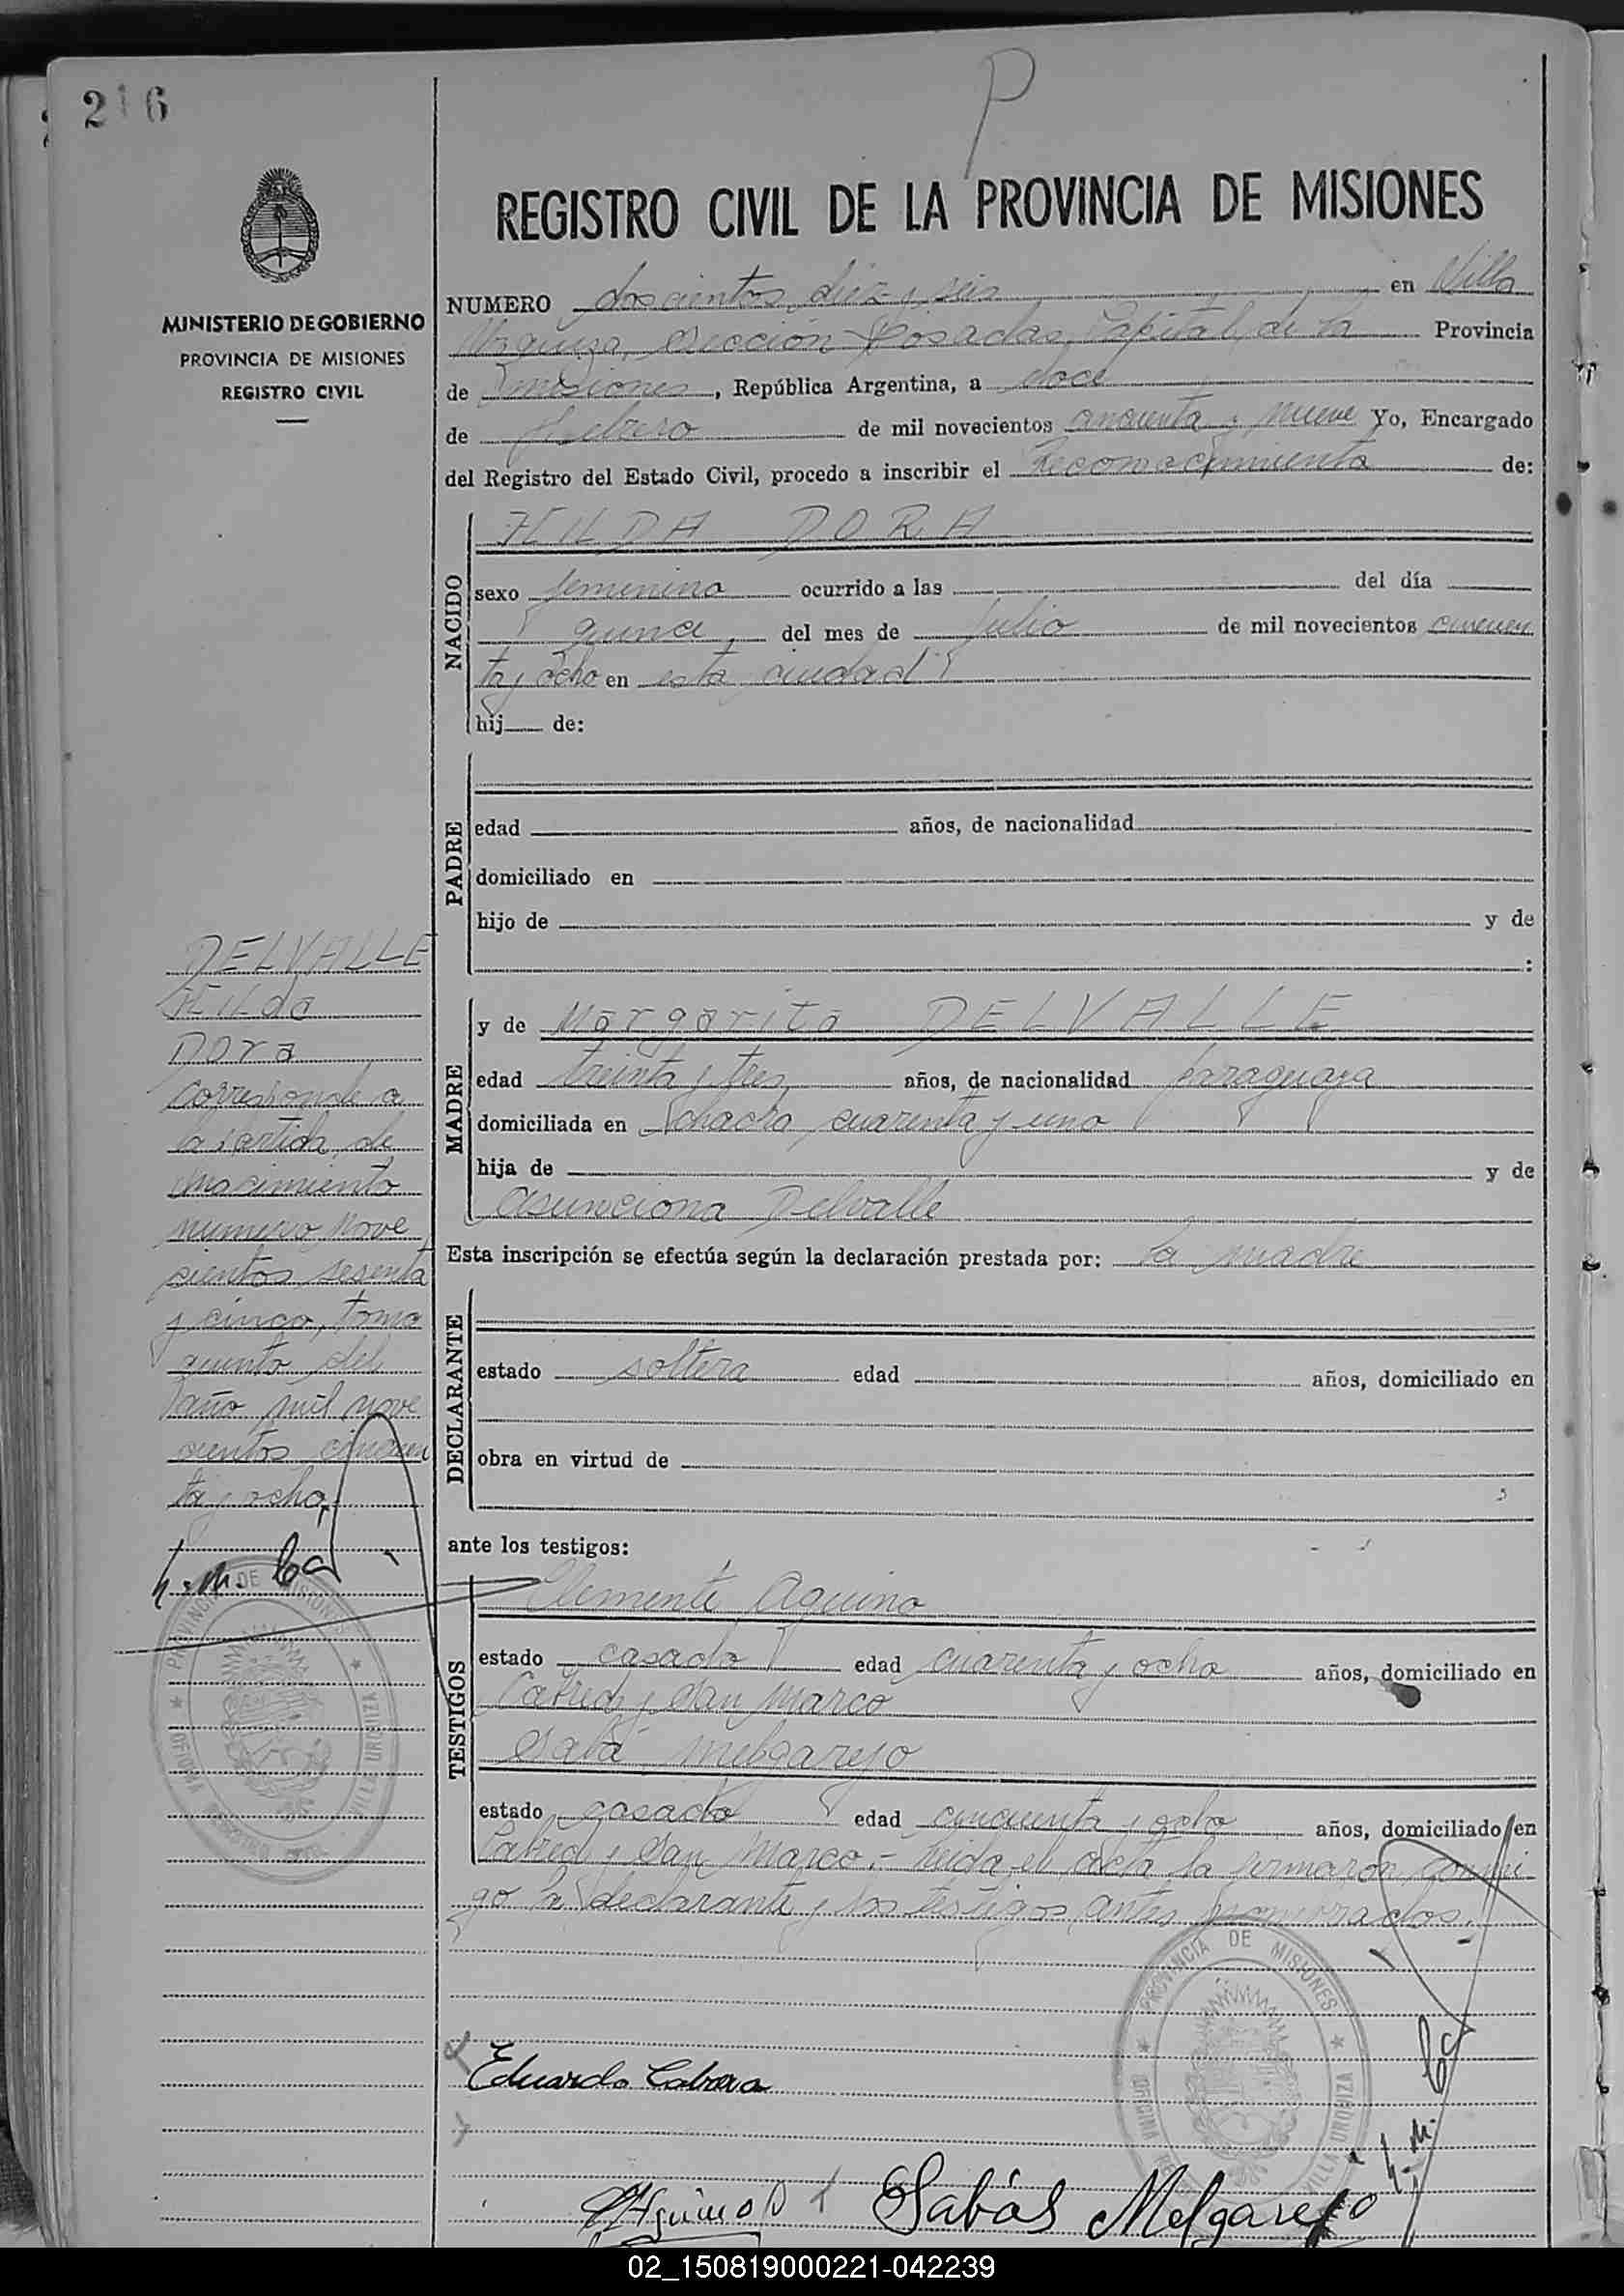 216
P
MINISTERIO DE GOBIERNO
PROVINCIA DE MISIONES
REGISTRO CIVIL
REGISTRO CIVIL DE LA PROVINCIA DE MISIONES
NUMERO doscientos diez y seis en Villa
Urquiza, Sección Posadas, Capital de la Provincia
de Misiones, República Argentina, a doce
de febrero de mil novecientos cincuenta y nueve Yo, Encargado
del Registro del Estado Civil, procedo a inscribir el Reconocimiento de:
NACIDO
HILDA DORA
sexo femenino ocurrido a las del día
quince del mes de Julio de mil novecientos cincuen
ta y ocho en esta ciudad
hij de:
PADRE
edad años, de nacionalidad
domiciliado en
hijo de y de
:
MADRE
y de Margarita DELVALLE
edad treinta y tres años, de nacionalidad paraguaya
domiciliada en chacra cuarenta y uno
hija de y de
Asunciona Delvalle
Esta inscripción se efectúa según la declaración prestada por: la madre
DECLARANTE
estado soltera edad años, domiciliado en
obra en virtud de
ante los testigos:
TESTIGOS
Clemente Aquino
estado casado edad cuarenta y ocho años, domiciliado en
Cabred y San Marco
Saba Melgarejo
estado casado edad cincuenta y ocho años, domiciliado en
Cabred y San Marco.- Leida el acta la firmaron conmi
go la declarante y los testigos antes nombrados.
DELVALLE
HILda
Dora
Corresponde a
la partida de
nacimiento
numero nove
cientos sesenta
y cinco, tomo
quinto del
año mil nove
cientos cincuen
ta y ocho.
PROVINCIA DE MISIONES
OFICINA
VILLA URQUIZA
PROVINCIA DE MISIONES
OFICINA
VILLA URQUIZA
Eduardo Cabrera
Aquino
Sabás Melgarejo
02_150819000221-042239